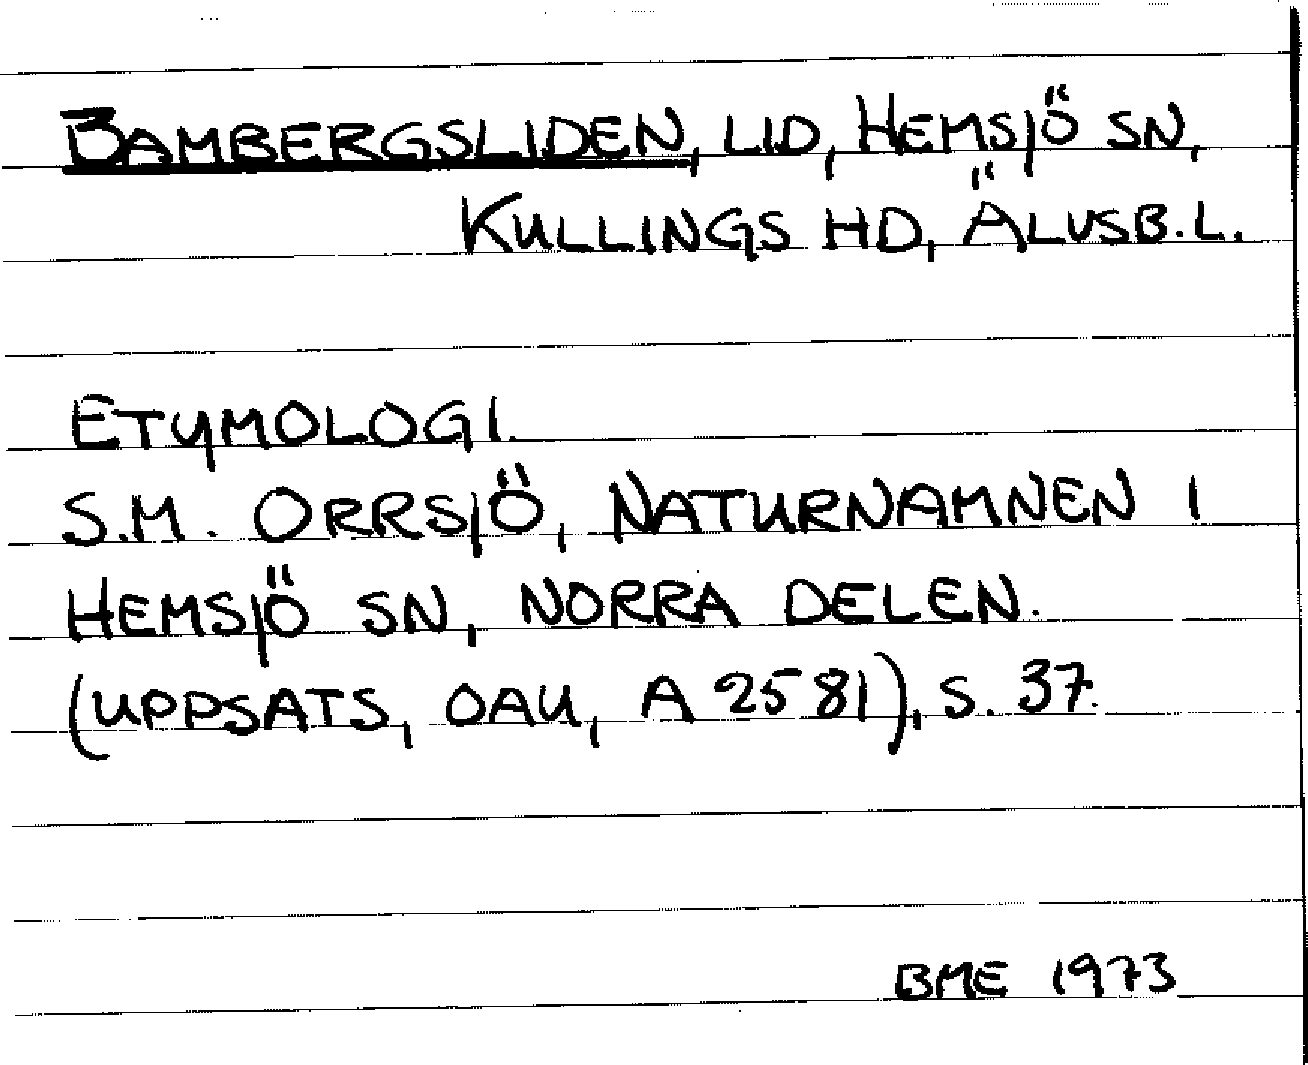 BAMBERGSLIDEN, LID, HEMSJÖ SN,
KULLINGS HD, ÄLVSB.L.
ETYMOLOGI.
S.M. ORRSJÖ, NATURNAMNEN I
HEMSJÖ SN, NORRA DELEN.
(UPPSATS, OAU, A 2581), S. 37.
BME 1973